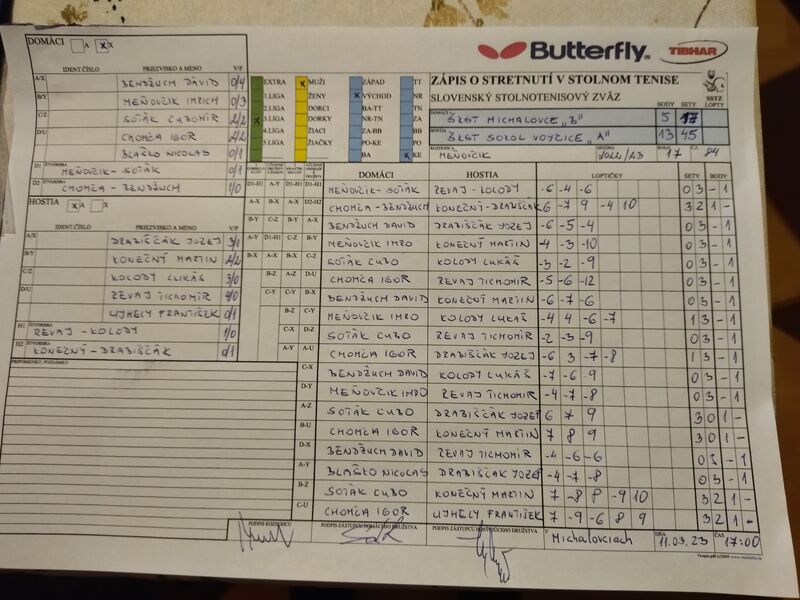 DOMÁCI A X X
Butterfly
TIBHAR
IDENT.ČÍSLO PRIEZVISKO A MENO V/P
A/X BENDŽUCH DÁVID 0/4
B/Y MEŇOVČIK IMRICH 0/3
C/Z SOTÁK ĽUBOMÍR 2/2
D/U CHOMČA IGOR 2/2
BLAŠKO NICOLAS 0/1
D1 ŠTVORHRA MEŇOVČIK - SOTÁK 0/1
D2 ŠTVORHRA CHOMČA - BENDŽUCH 1/0
EXTRA
1.LIGA
2.LIGA
x 3.LIGA
4.LIGA
5.LIGA
x MUŽI
ŽENY
DORCI
DORKY
ŽIACI
ŽIAČKY
ZÁPAD
x VÝCHOD
BA-TT
NR-TN
ZA-BB
PO-KE
BA
TT
NR
TN
ZA
BB
PO
x KE
ZÁPIS O STRETNUTÍ V STOLNOM TENISE
SLOVENSKÝ STOLNOTENISOVÝ ZVÄZ
SSTZ
BODY SETY LOPTY
DOMÁCI ŠKST MICHALOVCE „B" 5 17
HOSTIA ŠKST SOKOL VOJČICE „A" 13 45
ROZHODCA MEŇOVČIK SEZÓNA 2022/23 KOLO 17 Č. 84
HOSTIA x A X
IDENT.ČÍSLO PRIEZVISKO A MENO V/P
A/X DRABIŠČÁK JOZEJ 3/1
B/Y KONEČNÝ MARTIN 2/2
C/Z KOLODY LUKÁŠ 3/0
D/U REVAJ TICHOMÍR 4/0
UJHELY FRANTIŠEK 0/1
H1 ŠTVORHRA REVAJ - KOLODY 1/0
H2 ŠTVORHRA KONEČNÝ - DRABIŠČÁK 0/1
PRIPOMIENKY, POZNÁMKY
DOMÁCI HOSTIA LOPTIČKY SETY BODY
D1-H1 MEŇOVČIK - SOTÁK REVAJ - KOLODY -6 -4 -6 0 3 - 1
D2-H2 CHOMČA - BENDŽUCH KONEČNÝ - DRABIŠČÁK 6 -7 9 -4 10 3 2 1 -
A-X BENDŽUCH DÁVID DRABIŠČÁK JOZEF -6 -5 -4 0 3 - 1
B-Y MEŇOVČIK IMRO KONEČNÝ MARTIN -4 -3 -10 0 3 - 1
C-Z SOTÁK ĽUBO KOLODY LUKÁŠ -3 -2 -9 0 3 - 1
D-U CHOMČA IGOR REVAJ TICHOMÍR -5 -6 -12 0 3 - 1
B-X BENDŽUCH DÁVID KONEČNÝ MARTIN -6 -7 -6 0 3 - 1
C-Y MEŇOVČIK IMRO KOLODY LUKÁŠ -4 4 -6 -7 1 3 - 1
D-Z SOTÁK ĽUBO REVAJ TICHOMÍR -2 -3 -9 0 3 - 1
A-U CHOMČA IGOR DRABIŠČÁK JOZEJ -6 3 -7 -8 1 3 - 1
C-X BENDŽUCH DÁVID KOLODY LUKÁŠ -7 -6 -9 0 3 - 1
D-Y MEŇOVČIK IMRO REVAJ TICHOMÍR -4 -7 -8 0 3 - 1
A-Z SOTÁK ĽUBO DRABIŠČÁK JOZEF 6 7 9 3 0 1 -
B-U CHOMČA IGOR KONEČNÝ MARTIN 7 8 9 3 0 1 -
D-X BENDŽUCH DÁVID REVAJ TICHOMÍR -4 -6 -6 0 3 - 1
A-Y BLAŠKO NICOLAS DRABIŠČÁK JOZEF -4 -7 -8 0 3 - 1
B-Z SOTÁK ĽUBO KONEČNÝ MARTIN 7 -8 8 -9 10 3 2 1 -
C-U CHOMČA IGOR UJHELY FRANTIŠEK 7 -9 -6 8 9 3 2 1 -
PODPIS ROZHODCU PODPIS ZÁSTUPCU DOMÁCEHO DRUŽSTVA PODPIS ZÁSTUPCU HOSŤUJÚCEHO DRUŽSTVA V Michalovciach DŇA 11.03.23 ČAS 17:00